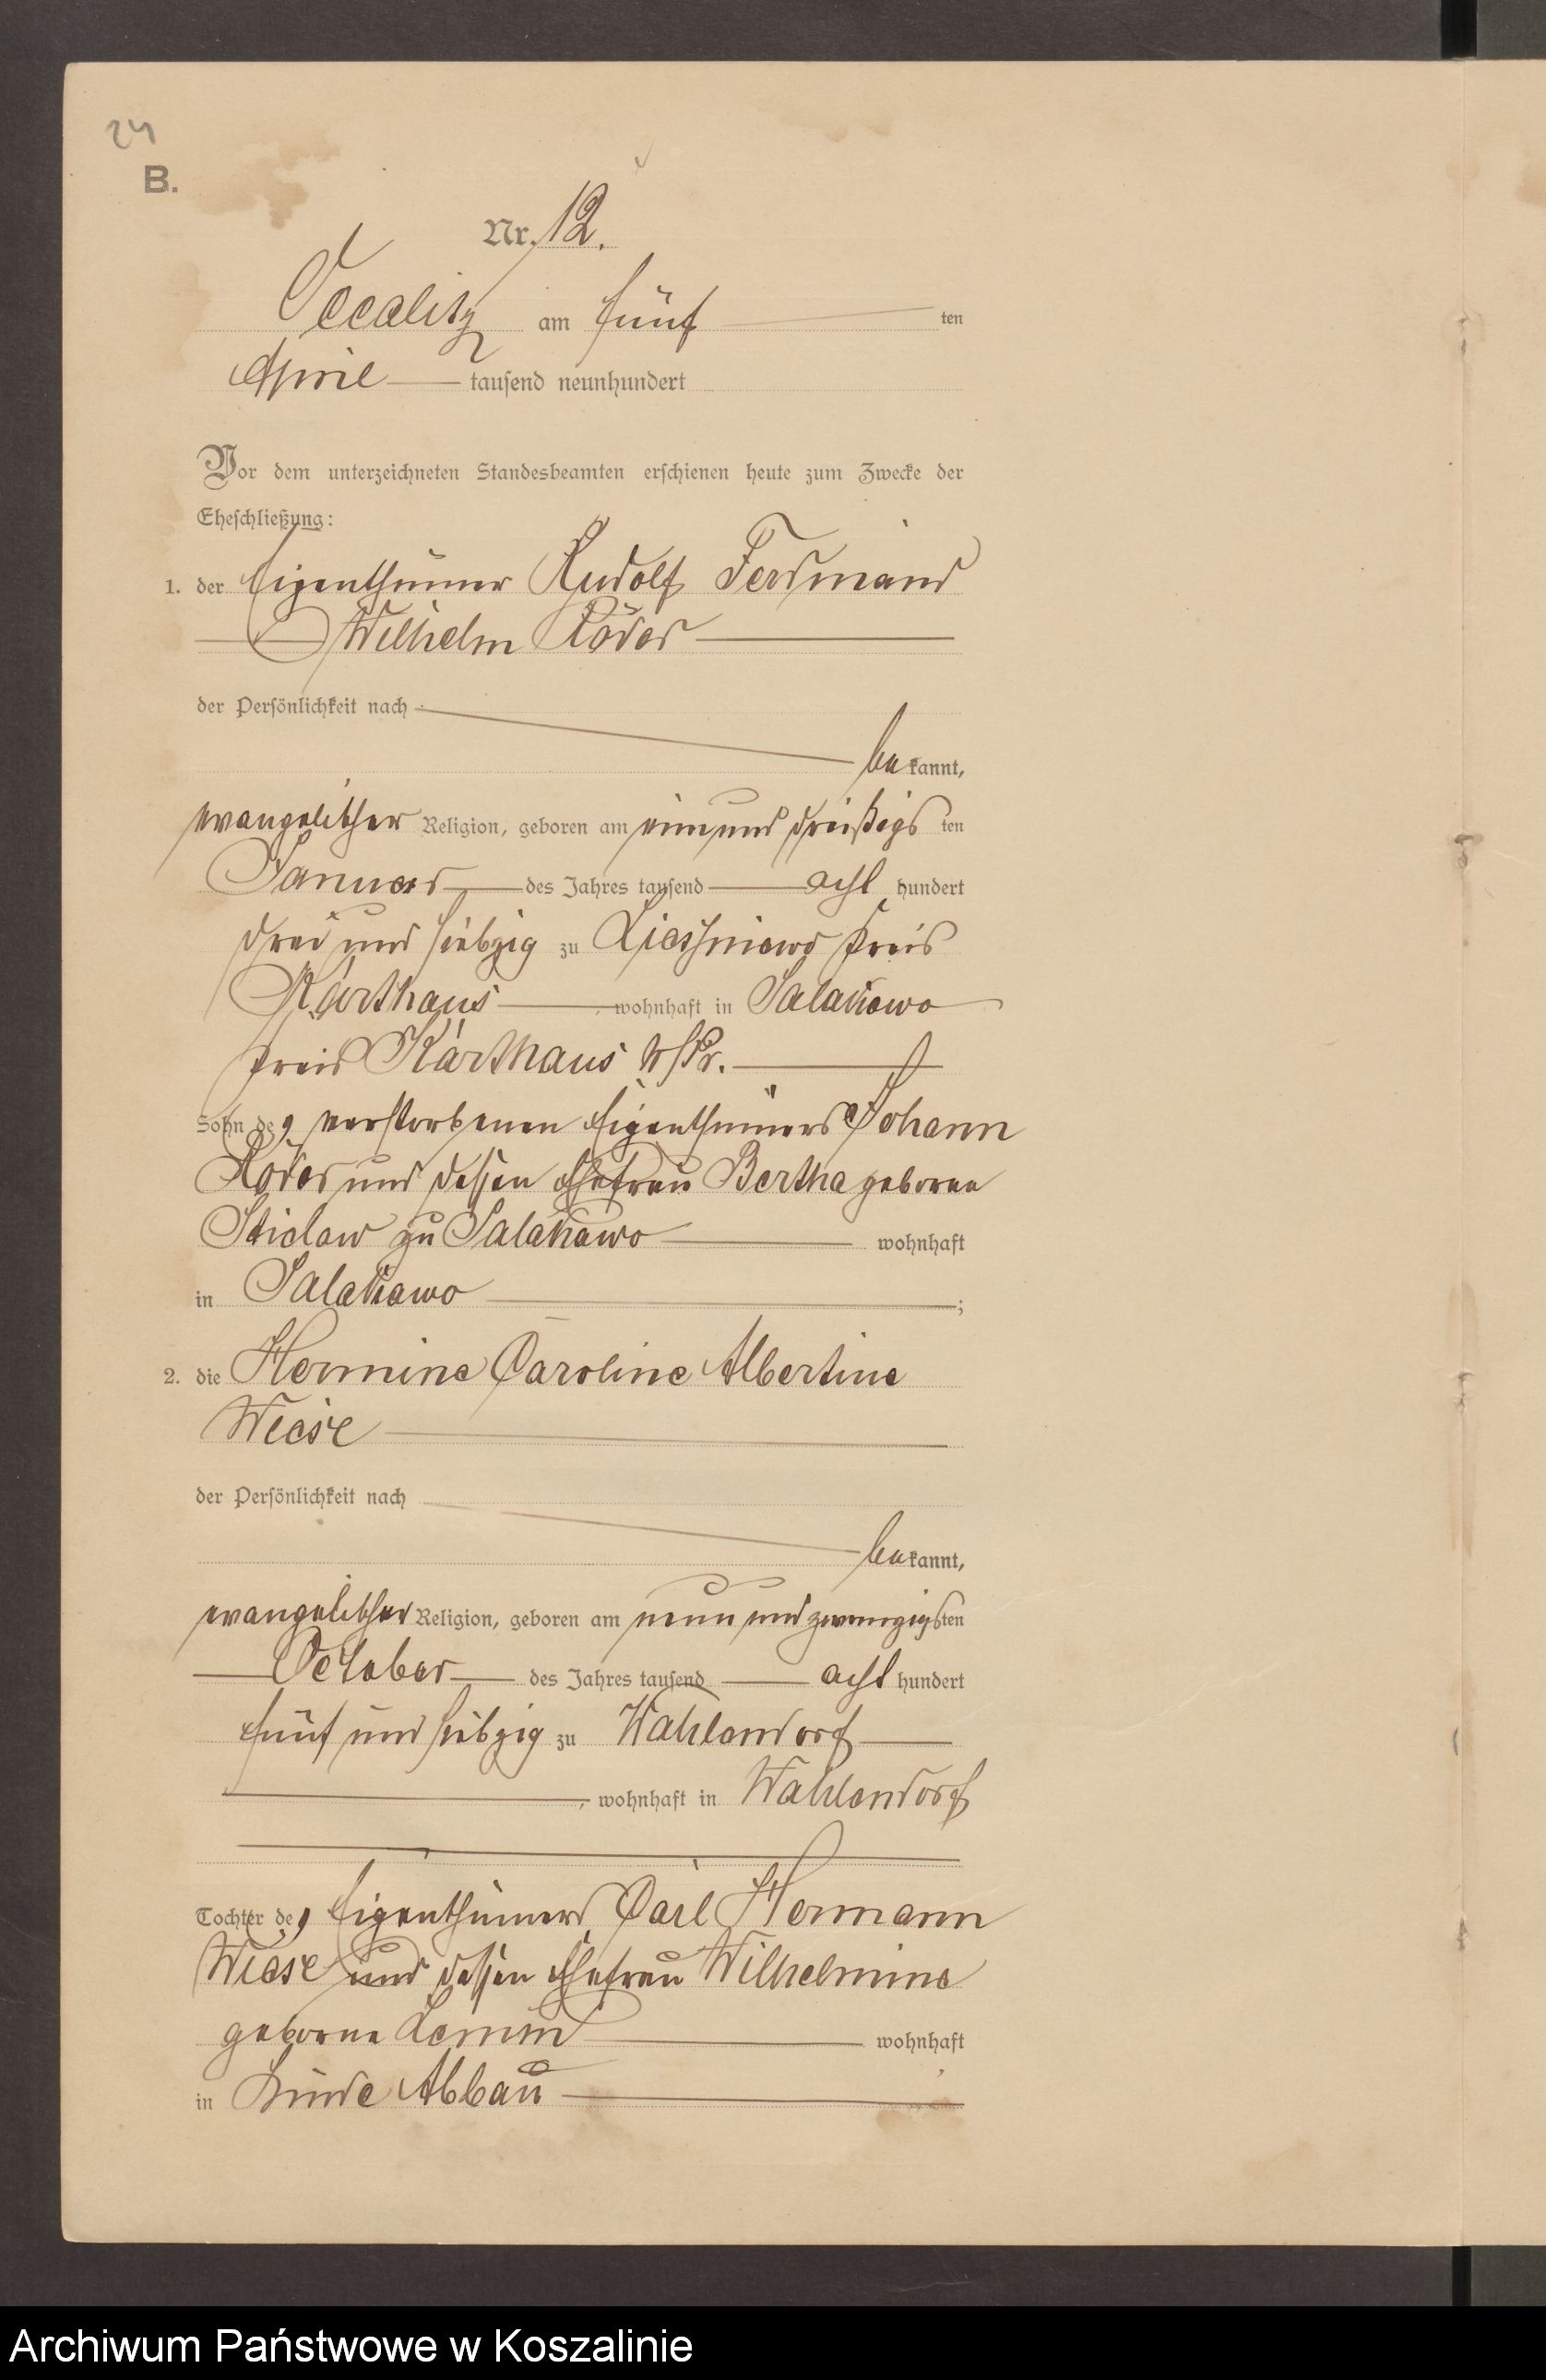 24
B.
Nr. 12.
Occalitz am fünf ten
April tausend neunhundert
Vor dem unterzeichneten Standesbeamten erschienen heute zum Zwecke der
Eheschließung:
1. der Eigenthümer Rudolf Ferdinand
Wilhelm Röder
der Persönlichkeit nach
bekannt,
evangelischer Religion, geboren am einunddreißigs ten
Januar des Jahres tausend acht hundert
drei und siebzig zu Kreis
Karthaus wohnhaft in Salakowo
Kreis Karthaus W/Pr.
Sohn des verstorbenen Eigenthümers Johann
Röder und dessen Ehefrau Bertha geborene
zu Salakowo wohnhaft
in Salakowo ;
2. die Hermine Caroline Albertine
Wiese
der Persönlichkeit nach
bekannt,
evangelischer Religion, geboren am neun und zwanzigsten
October des Jahres tausend acht hundert
fünf und siebzig zu Wahlendorf
, wohnhaft in Wahlendorf
Tochter des Eigenthümers Carl Hermann
Wiese und dessen Ehefrau Wilhelmine
geborne Lemm wohnhaft
in Linde Abbau
Archiwum Państwowe w Koszalinie